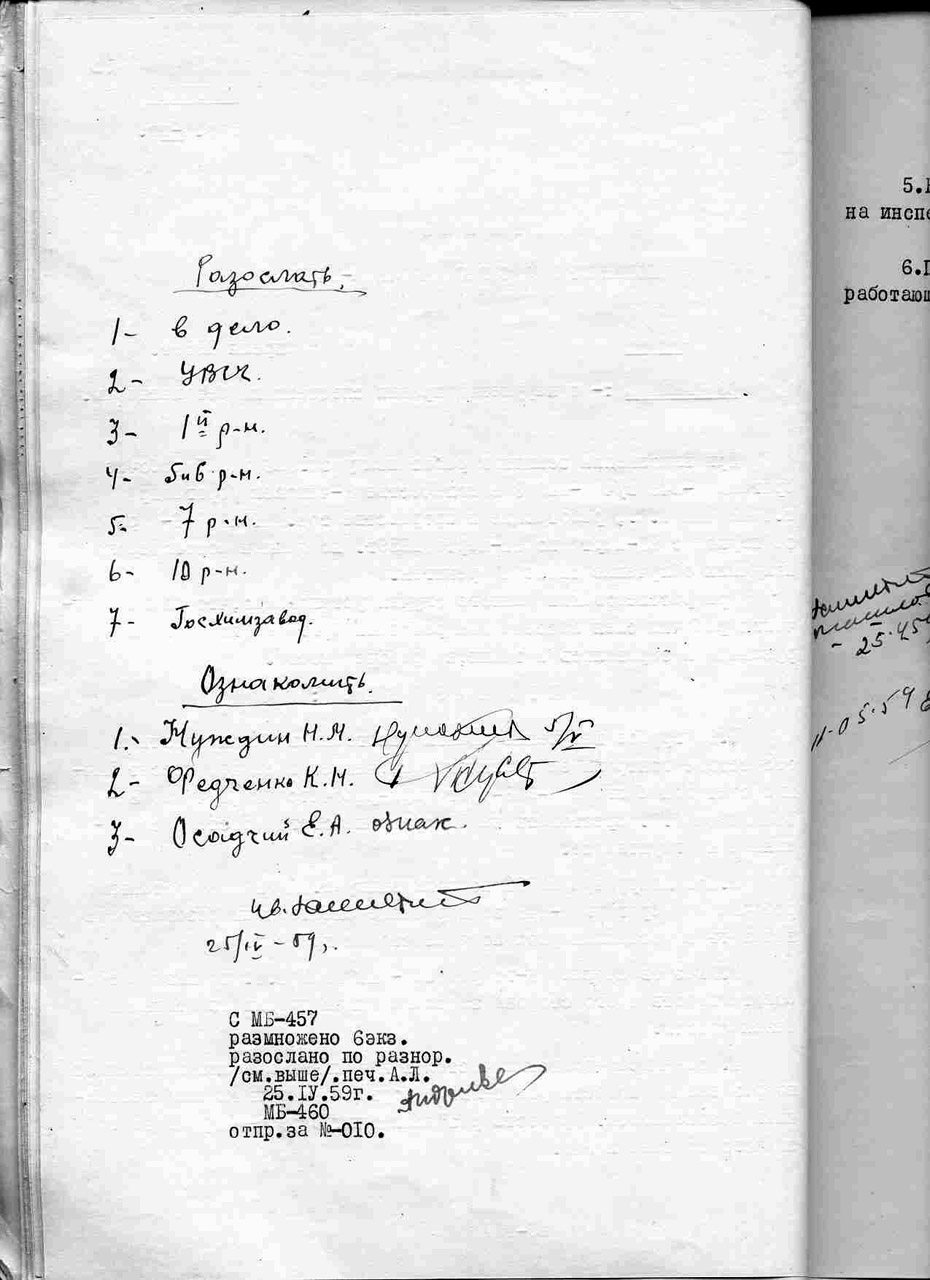 Разослать.
1- в дело.
2- УВСЧ.
3- 1й р-н.
4- 5и6 р-н.
5- 7 р-н.
6- 10 р-н.
7- Госхимзавод.
Ознакомить.
1.- Нуждин Н.М. 5/V
2- Федченко К.М.
3- Осадчий Е.А. ознак.
25/IV-59г.
С МБ-457
размножено 6экз.
разослано по разнор.
/см.выше/.печ.А.Л.
25.IУ.59г.
МБ-460
отпр.за №-010.
5.
на инспе
6.
работающ